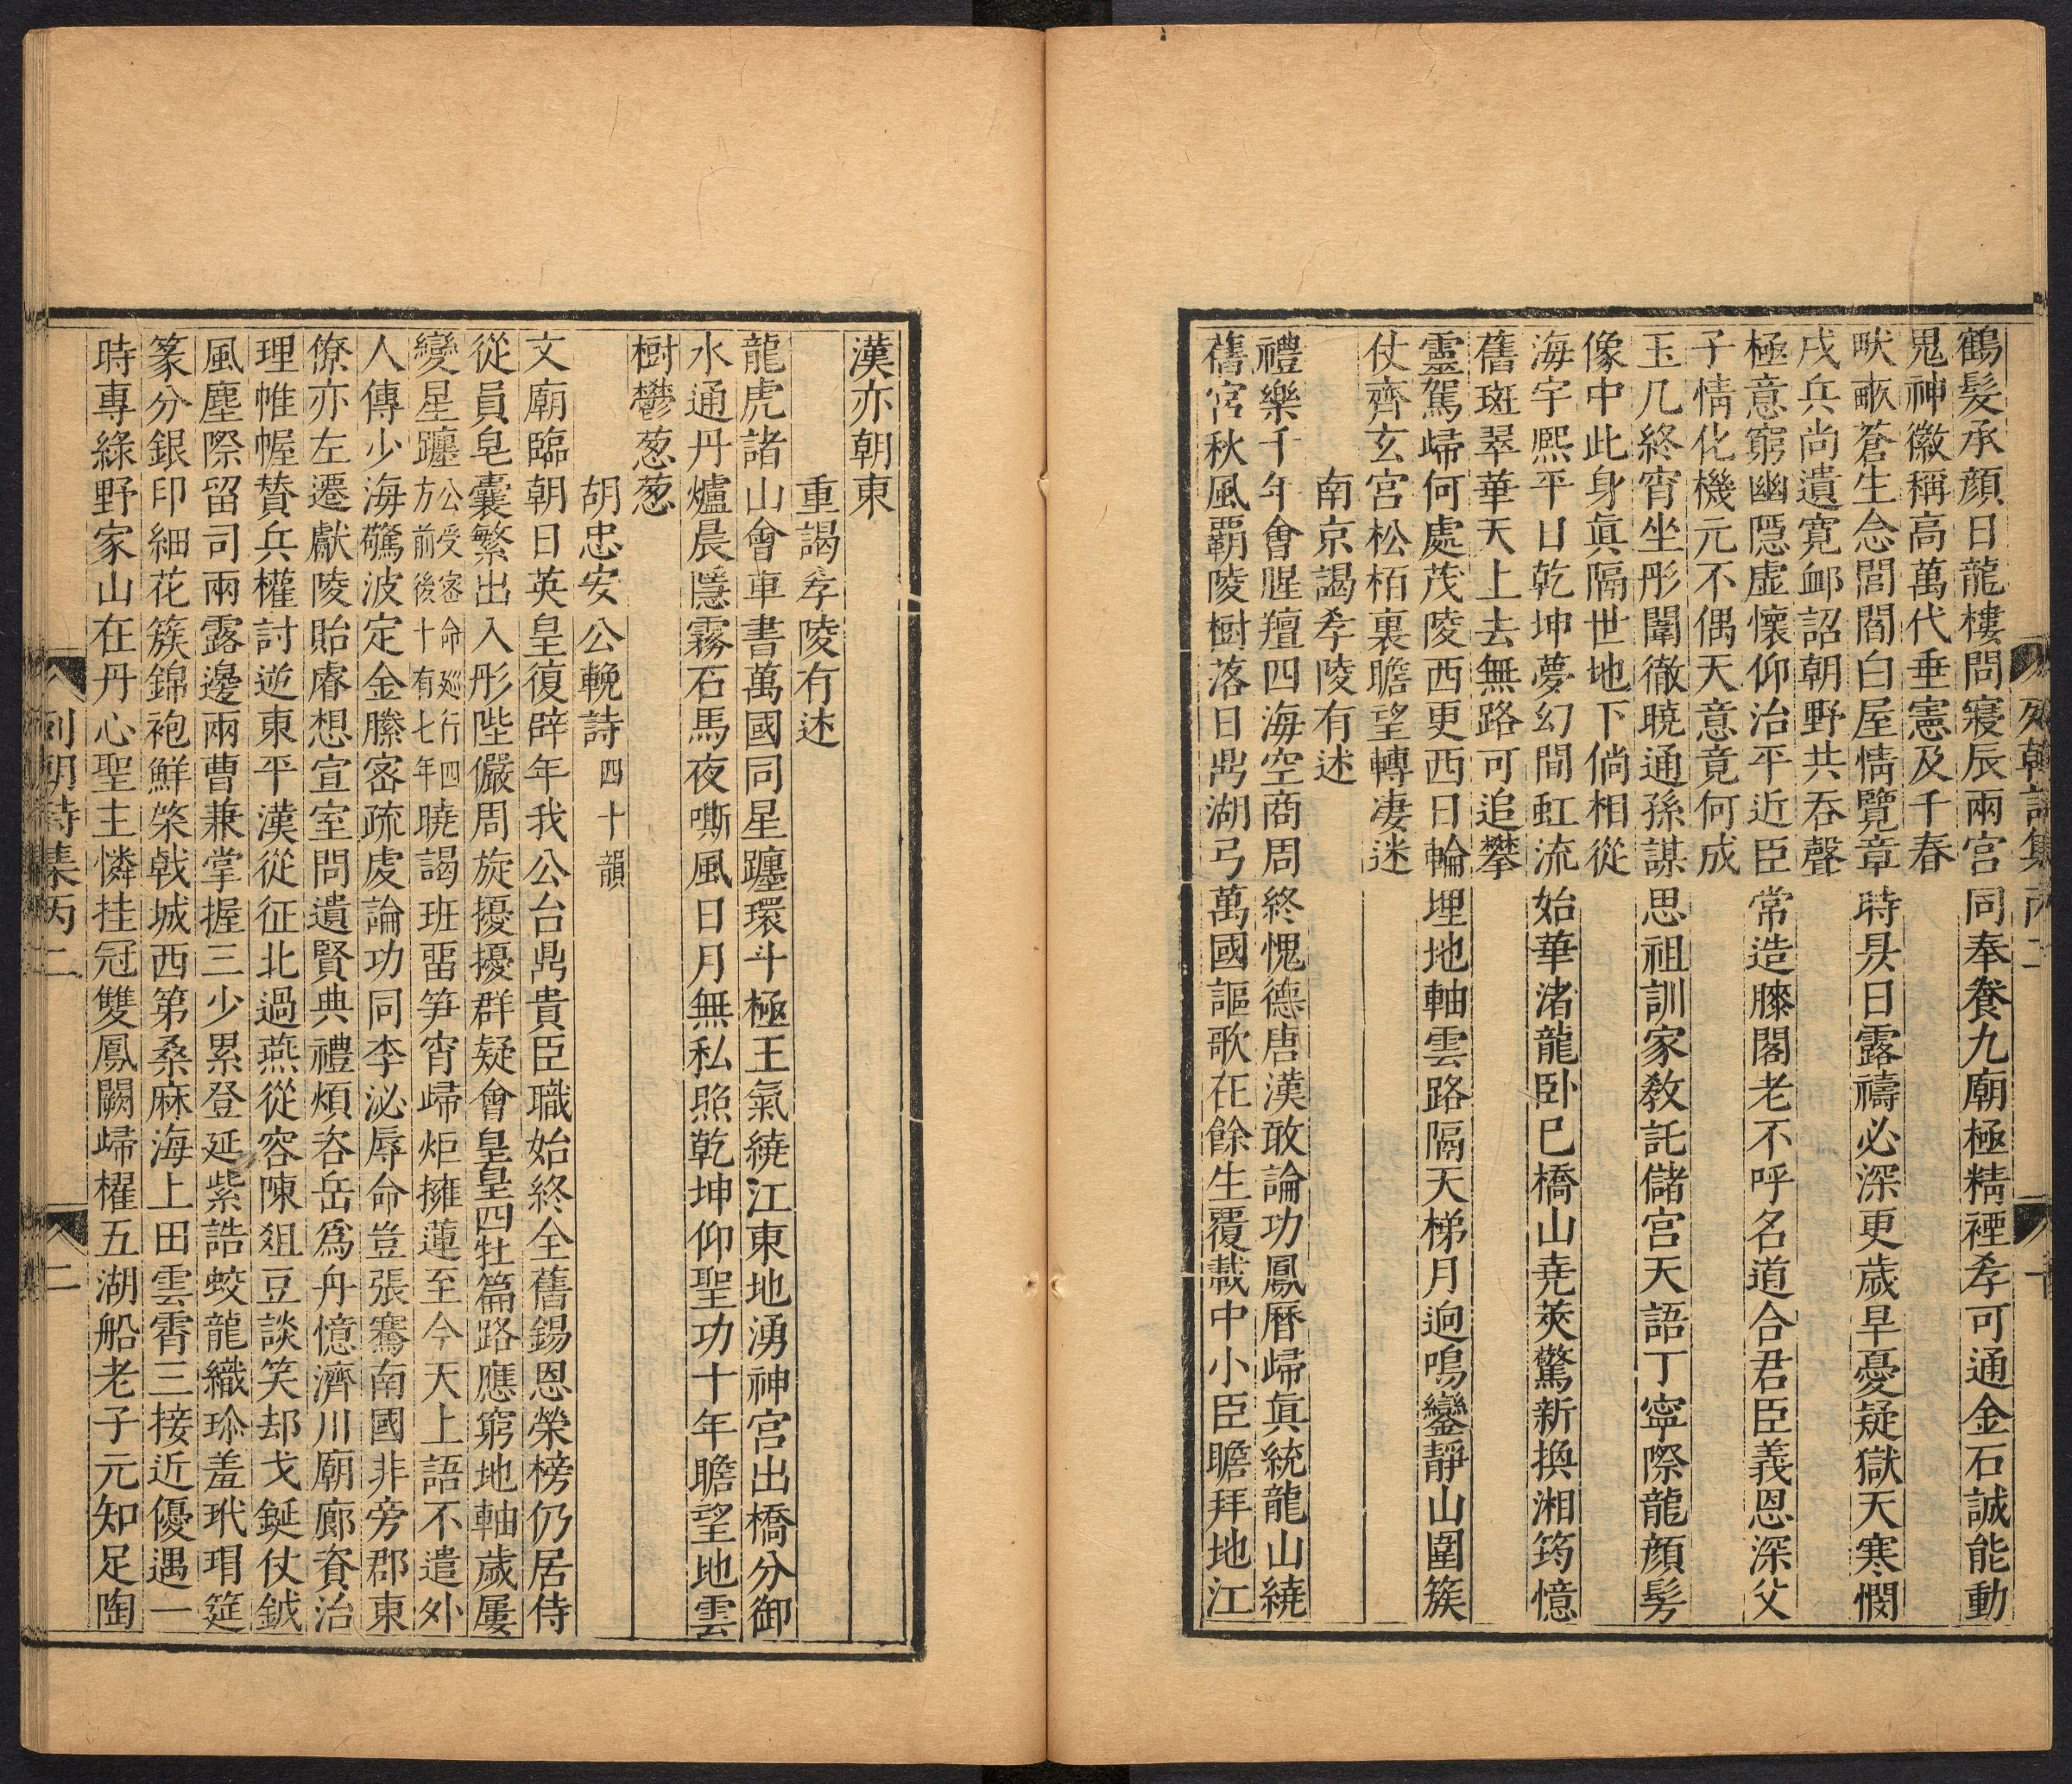 鶴髮承顏日龍樓問寢辰兩宮同奉養九廟極精禋孝可通金石誠能動
鬼神徽稱高萬代垂憲及千春
畎畝蒼生念閭閻白屋情覽章時昃日露禱必深更歲旱憂疑獄天寒憫
戍兵尚遺寬卹詔朝野共吞聲
極意窮幽隱虛懷仰治平近臣常造膝閣老不呼名道合君臣義恩深父
子情化機元不偶天意竟何成
玉几終宵坐彤闈徹曉通孫謀思祖訓家教託儲宮天語丁寧際龍顏髣
像中此身眞隔世地下倘相從
海宇熙平日乾坤夢幻間虹流始華渚龍卧巳橋山堯莢驚新換湘筠憶
舊斑翠華天上去無路可追攀
靈駕歸何處茂陵西更西日輪埋地軸雲路隔天梯月逈鳴鑾靜山圍簇
仗齊玄宮松栢裏瞻望轉凄迷
南京謁孝陵有述
禮樂千年會腥羶四海空商周終愧德唐漢敢論功鳳曆歸眞統龍山繞
舊宮秋風覇陵樹落日鼎湖弓萬國謳歌在餘生覆載中小臣瞻拜地江
漢亦朝東
重謁孝陵有述
龍虎諸山會車書萬國同星躔環斗極王氣繞江東地湧神宮出橋分御
水通丹爐晨隱霧石馬夜嘶風日月無私照乾坤仰聖功十年瞻望地雲
樹鬱葱葱
胡忠安公輓詩四十韻
文廟臨朝日英皇復辟年我公台鼎貴臣職始終全舊錫恩榮榜仍居侍
從員皂囊繁出入彤陛儼周旋擾擾群疑會皇皇四牡篇路應窮地軸歲屢
變星躔公受密命廵行四方前後十有七年曉謁班畱笋宵歸炬擁蓮至今天上語不遣外
人傳少海驚波定金縢密疏虔論功同李泌辱命豈張騫南國非旁郡東
僚亦左遷獻陵貽睿想宣室問遺賢典禮煩咨岳爲舟憶濟川廟廊資治
理帷幄贊兵權討逆東平漢從征北過燕從容陳俎豆談笑却戈鋋仗鉞
風塵際留司兩露邊兩曹兼掌握三少累登延紫誥蛟龍織珍羞玳瑁筵
篆分銀印細花簇錦袍鮮棨戟城西第桑麻海上田雲霄三接近優遇一
時專綠野家山在丹心聖主憐挂冠雙鳳闕歸櫂五湖船老子元知足陶
列朝詩集丙二
二